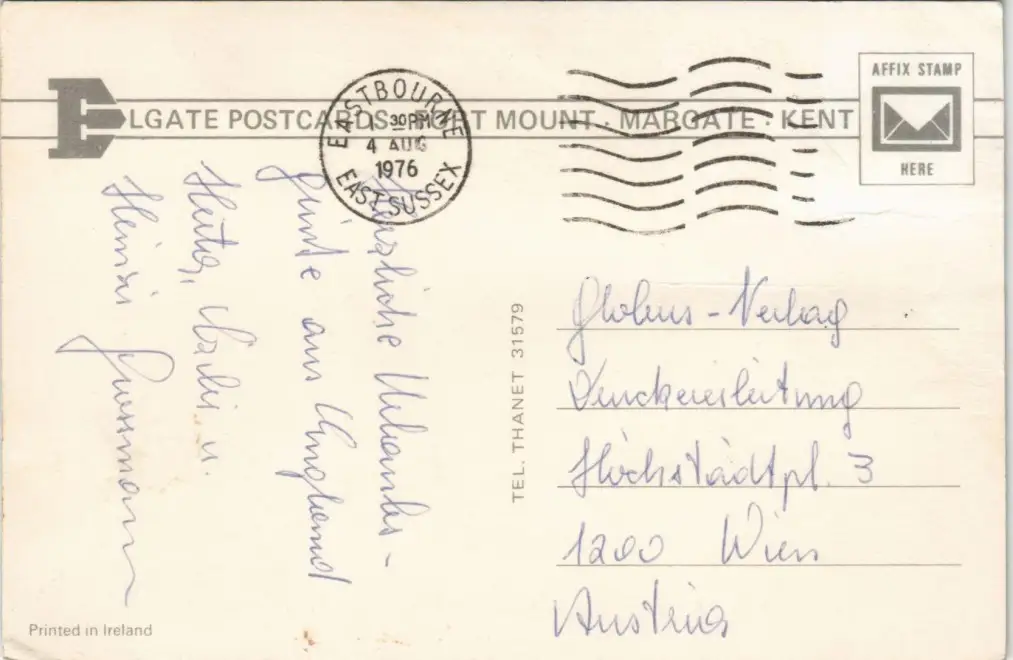 ELGATE POSTCARDS · MOUNT · MARGATE · KENT
EASTBOURNE
1 30PM
4 AUG
1976
EAST SUSSEX
AFFIX STAMP
HERE
Herzliche Urlaubs-
grüße aus England
Herta, u.
Heinrich Grossmann
TEL. THANET 31579
Globus-Verlag
Druckereileitung
Höchstädtpl. 3
1200 Wien
Austria
Printed in Ireland